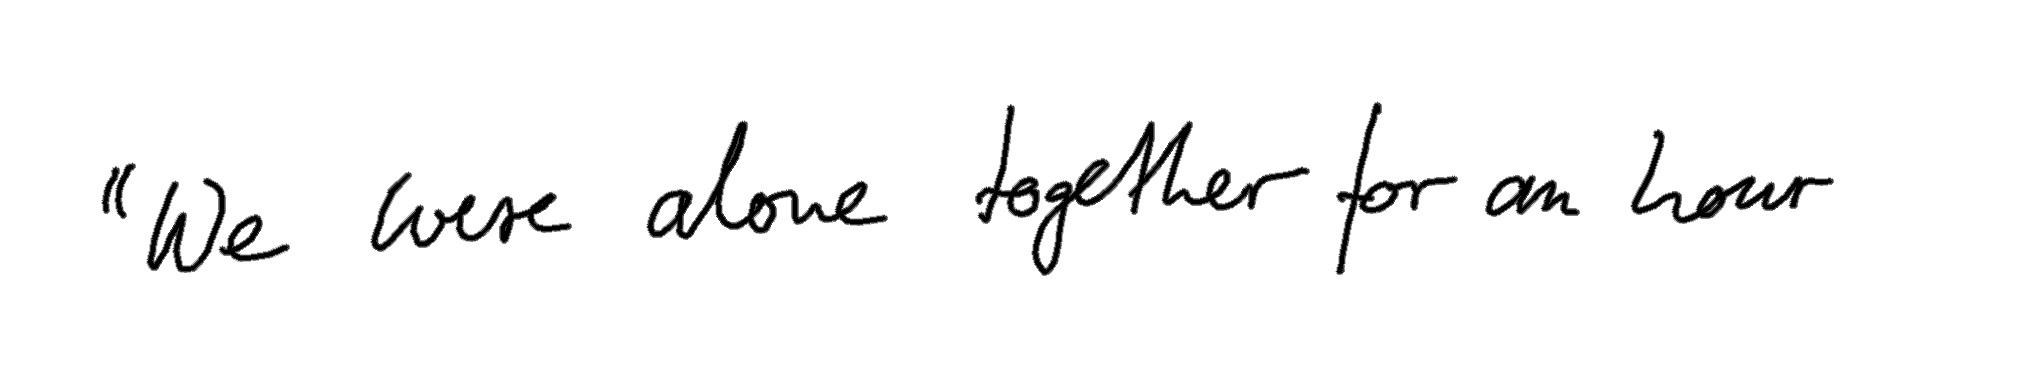 "We were alone together for an hour